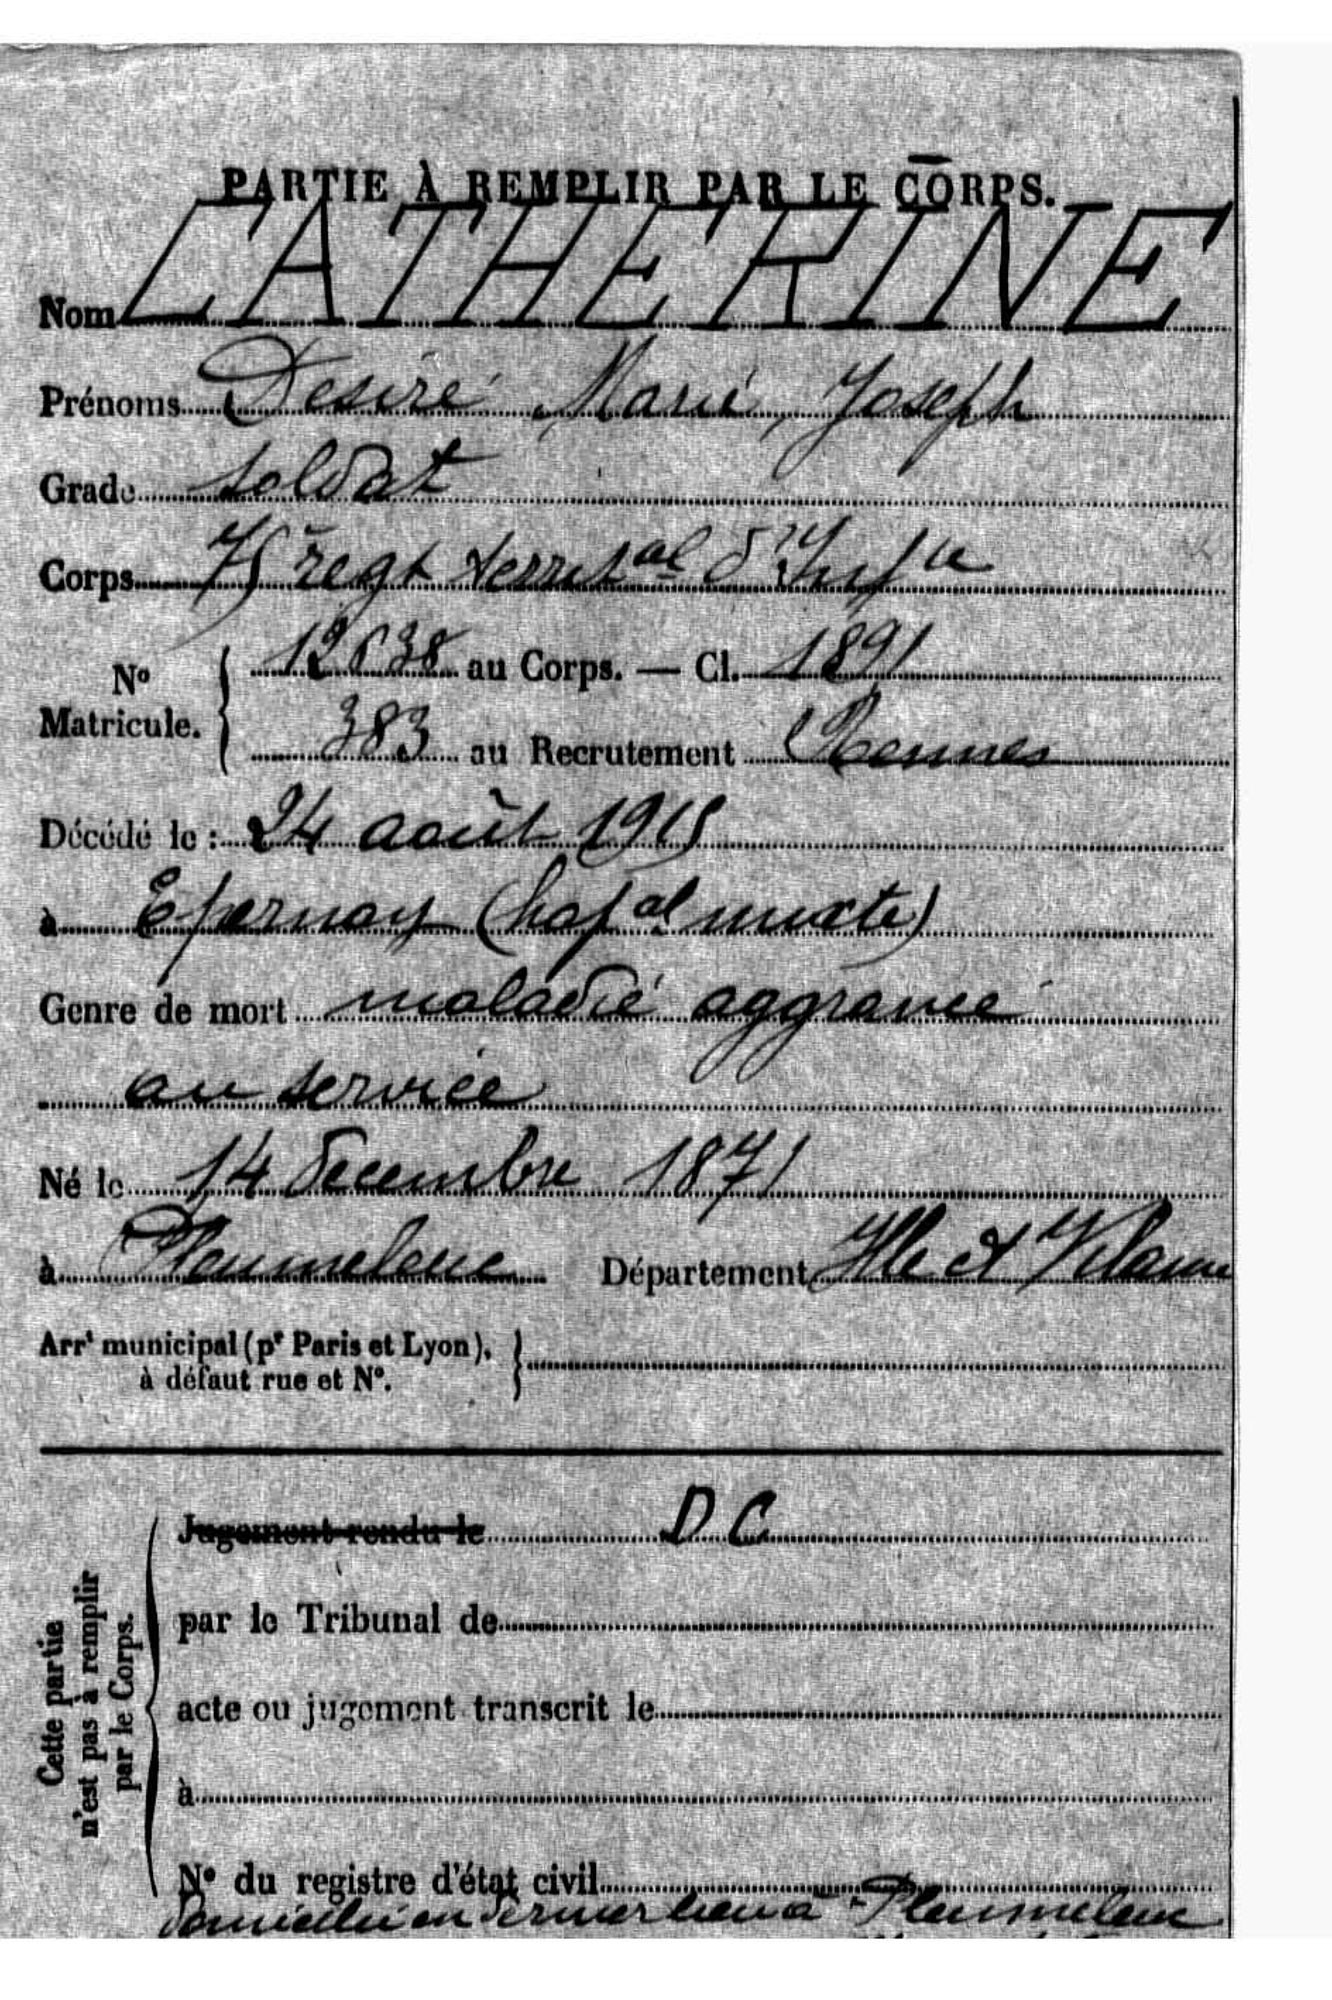 PARTIE À REMPLIR PAR LE CORPS.
Nom CATHERINE
Prénoms Desiré Marie, Joseph
Grade soldat
Corps 75 regt territal d'Infie
No Matricule. 12638 au Corps. — Cl. 1891
383 au Recrutement Rennes
Décédé le : 24 août 1915
à Epernay (hopal mixte)
Genre de mort maladie aggravée
au service
Né le 14 decembre 1871
à Pleumeleuc Département Ille et Vilaine
Arrt municipal (pr Paris et Lyon),
à défaut rue et No.
Cette partie
n'est pas à remplir
par le Corps.
Jugement rendu le D C
par le Tribunal de
acte ou jugement transcrit le
à
No du registre d'état civil
domicilié en dernier lieu à Pleumeleuc